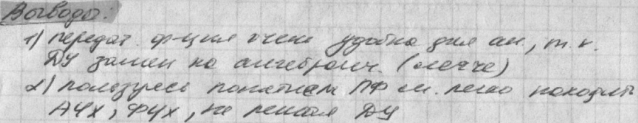 Выводы:
1) передат. ф-ция очень удобна для ан, т.к.
ДУ замен на алгебраич. (легче)
2) пользуясь понятием ПФ м. легко находить
АЧХ, ФЧХ, не решая ДУ